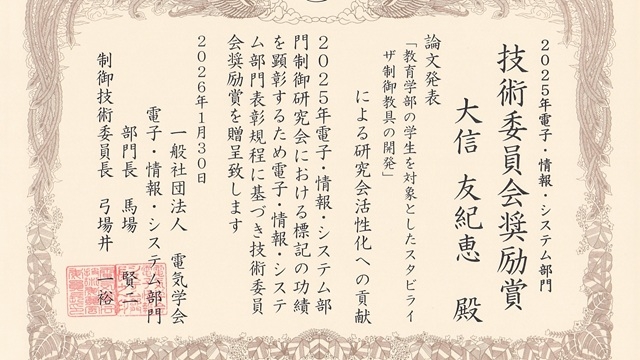 2025年電子・情報・システム部門
技術委員会奨励賞
大信 友紀恵 殿
論文発表
「教育学部の学生を対象としたスタビライ
ザ制御教具の開発」
による研究会活性化への貢献
2025年電子・情報・システム部
門制御研究会における標記の功績
を顕彰するため電子・情報・システ
ム部門表彰規程に基づき技術委員
会奨励賞を贈呈致します
2026年1月30日
一般社団法人 電気学会
電子・情報・システム部門
部門長 馬場 賢二
制御技術委員長 弓場井 一裕